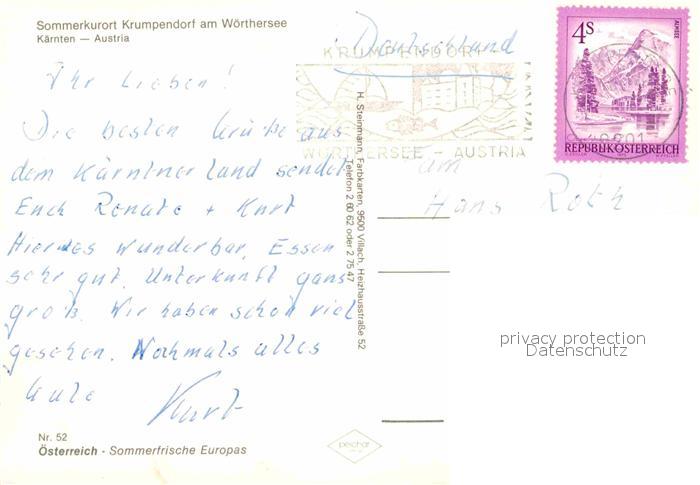 Sommerkurort Krumpendorf am Wörthersee
Kärnten — Austria
Ihr Lieben!
Die besten Grüße aus
dem Kärntnerland sendet
Euch Renate + Kurt
Hier es wunderbar, Essen
sehr gut. Unterkunft ganz
groß. Wir haben schon viel
gesehen. Nochmals alles
Gute
Kurt
Nr. 52
Österreich - Sommerfrische Europas
H. Steinmann, Farbkarten, 9500 Villach, Heizhausstraße 52
Telefon 2 60 62 oder 2 75 47
Deutschland
KRUMPENDORF
WÖRTHERSEE – AUSTRIA
4S
ALMSEE
REPUBLIK ÖSTERREICH
Hans Roth
privacy protection
Datenschutz